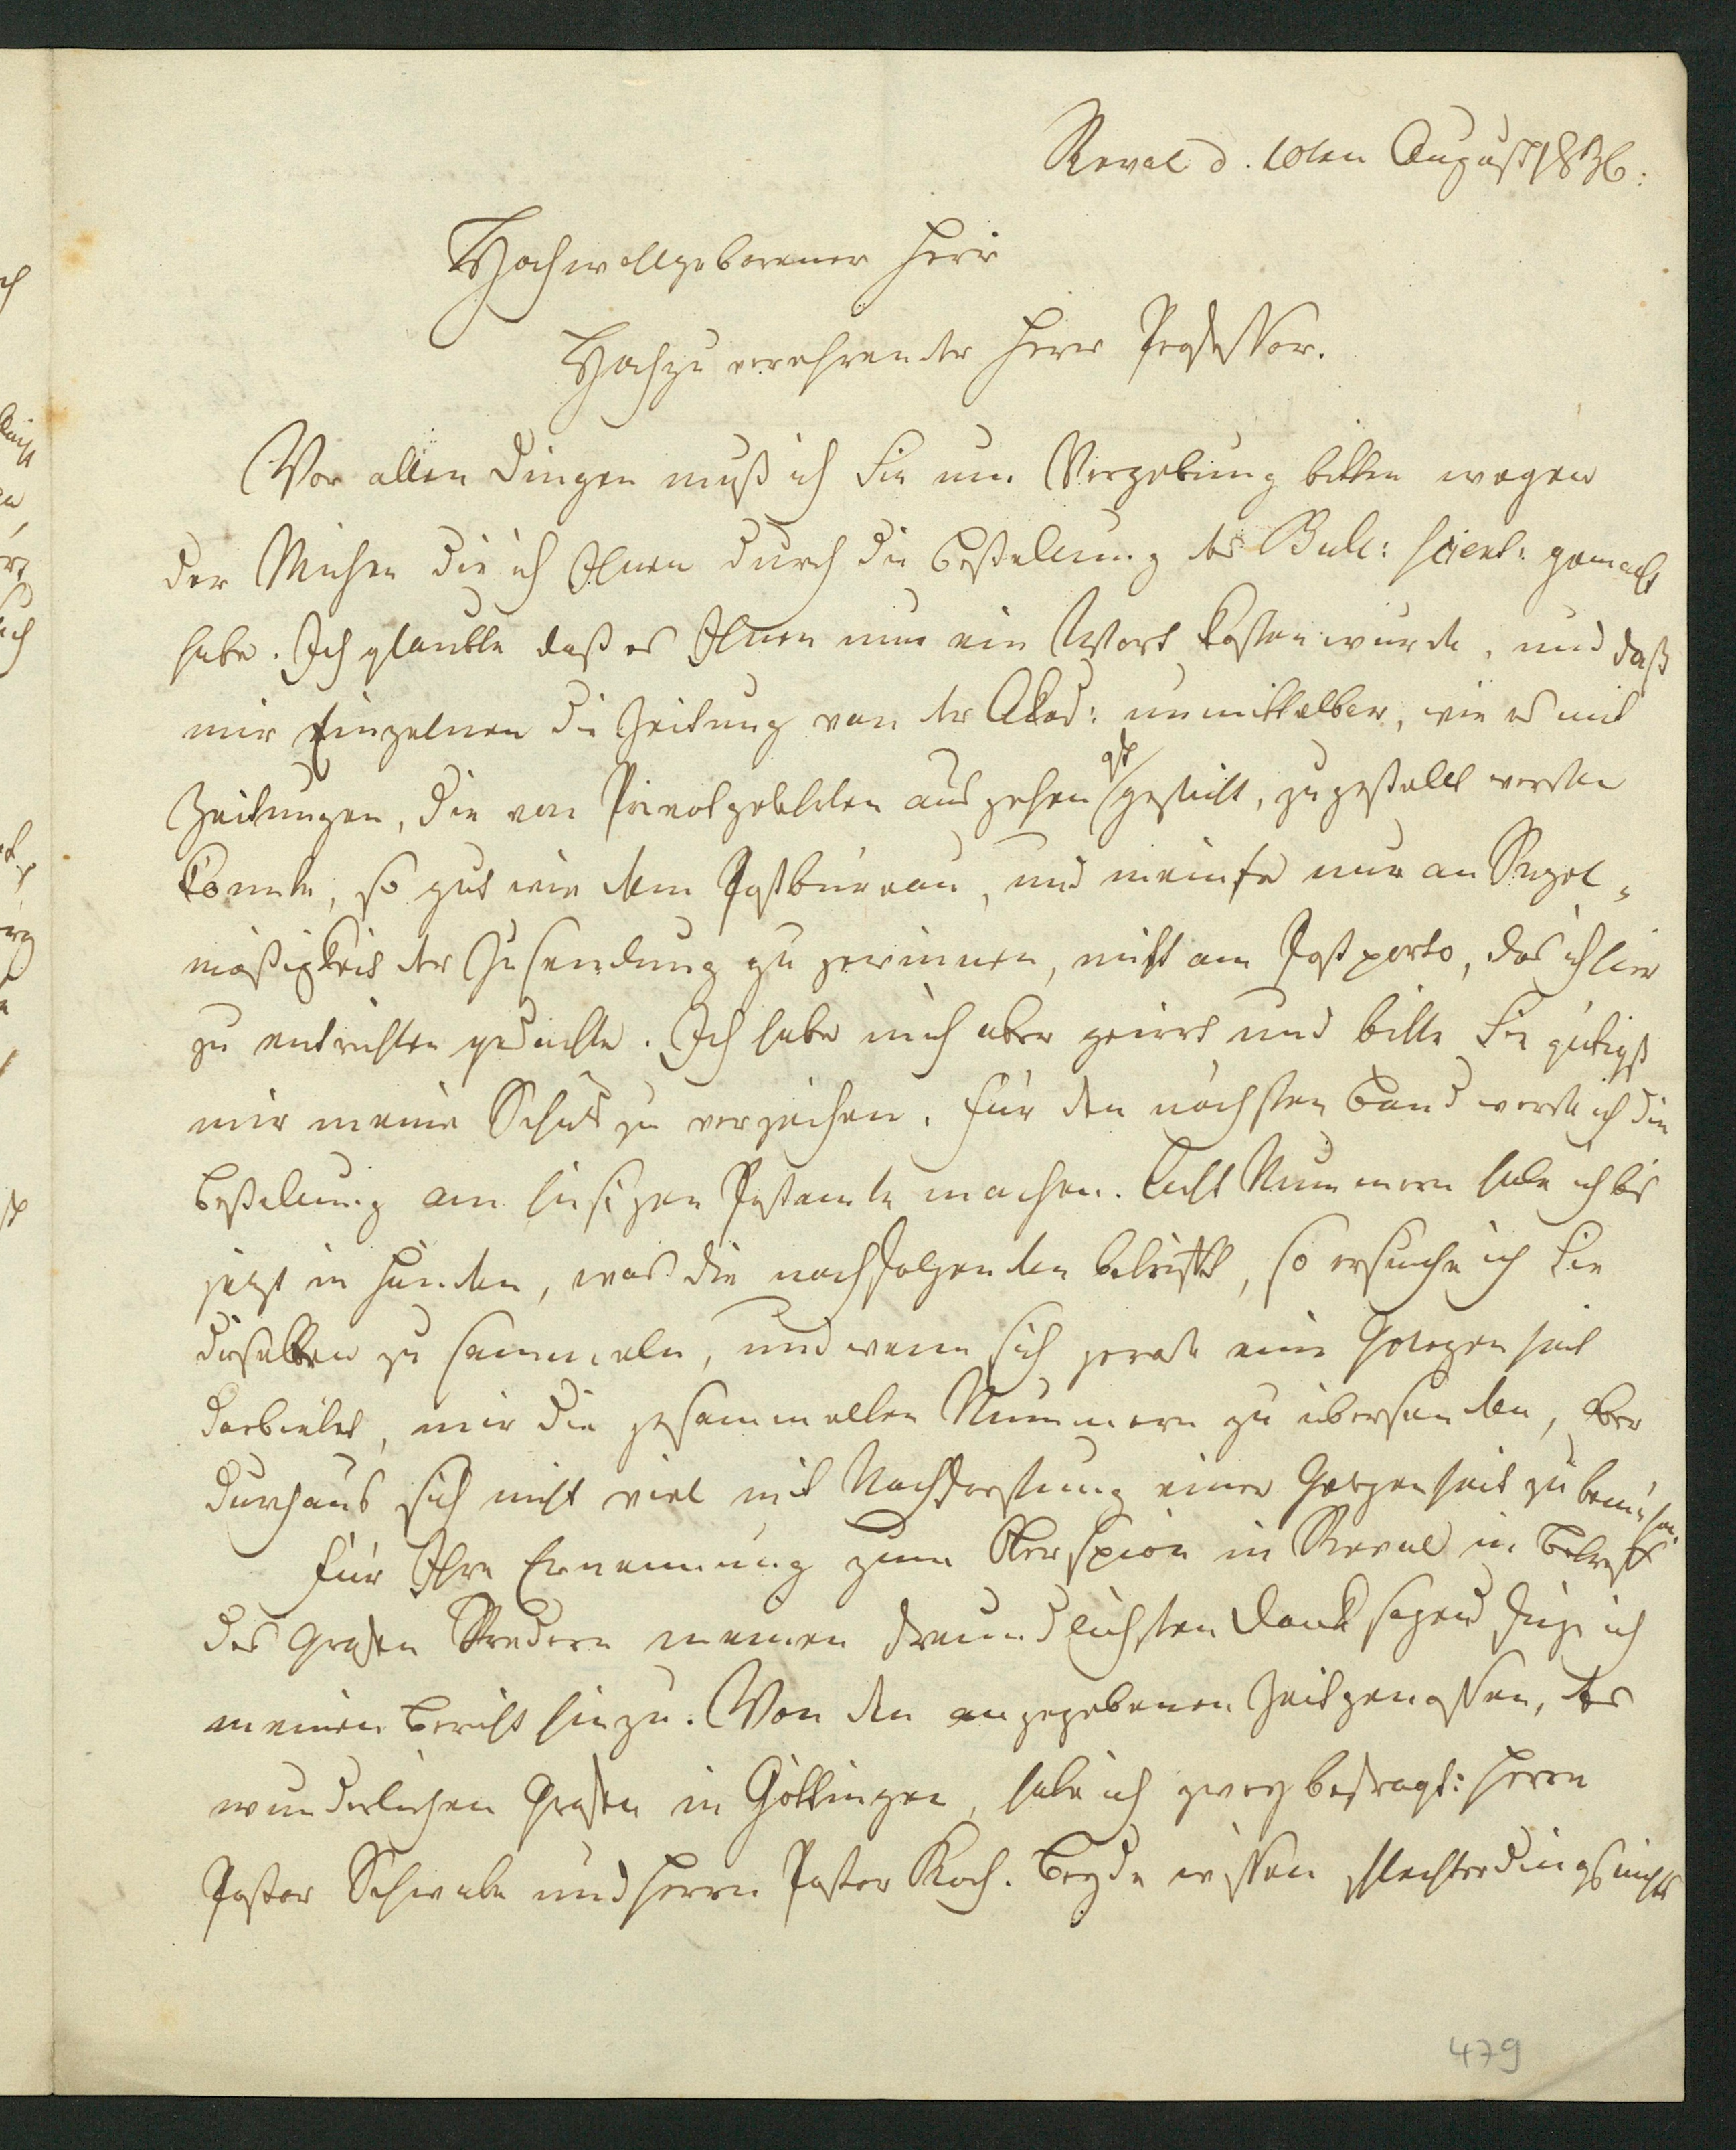 Reval d. 10ten August 1836.
Hochwollgeborener Herr
Hochzuverehrender Herr Professor.
Vor allen Dingen muß ich Sie um Vergebung bitten wegen
der Mühen die ich Ihnen durch die Bestellung des Bull: scient: gemacht
habe. Ich glaubte daß es Ihnen nur ein Wort kosten würde, und daß
mir Einzelnen die Zeitung von der Akad: unmittelbar, wie es mit
Zeitungen, die von Privatgelehrten ausgehen oft geschieht, zugestellt werden
könnte, so gut wie dem Postbüreau, und meinte nur an Regel-
mäßigkeit der Zusendung zu gewinnen, nicht am Postporto, das ich hier
zu entrichten gedachte. Ich habe mich aber geirrt und bitte Sie gütigst
mir meine Schuld zu verzeihen. Für den nächsten Band werde ich die
Bestellung am hiesigen Postamte machen. Acht Nummern habe ich bis
jetzt in Händen, was die nachfolgenden betrifft, so ersuche ich Sie
dieselben zu sammeln, und wenn sich gerade eine Gelegenheit
darbietet, mir die gesammelten Nummern zu übersenden, aber
durchaus sich nicht viel mit Nachforschung einer Gelegenheit zu bemühen.
Für Ihre Ernennung zum Oberspion in Reval in Betreff
des Grafen Bredern meinen freundlichsten Dank sagend füge ich
meinen Bericht hinzu. Von den angegebenen Zeitgenossen, des
wunderlichen Grafen in Göttingen, habe ich zwey befragt: Herrn
Pastor Schwabe und Herrn Pastor Koch. Beyde wissen schlechterdings nichts
479